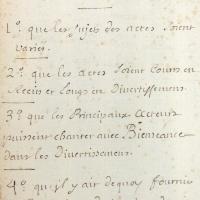 1.º que les sujets des actes soient
variés.
2.º que les actes soient Courts en
Recits et Longs en Divertissemens
3.º que les Principaux Acteurs
puissent chanter avec Bienseance
dans les Divertissemens.
4.º qu'il y ait dequoy fournir